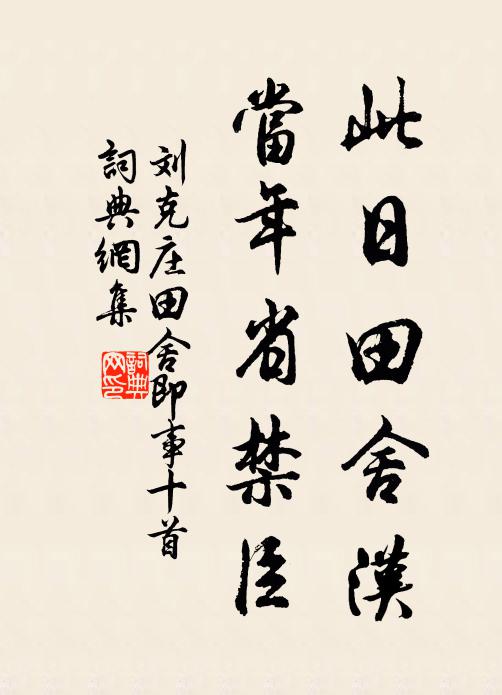 此日田舍漢
當年省禁臣
刘克庄田舍即事十首
詞典網集
詞典
网印